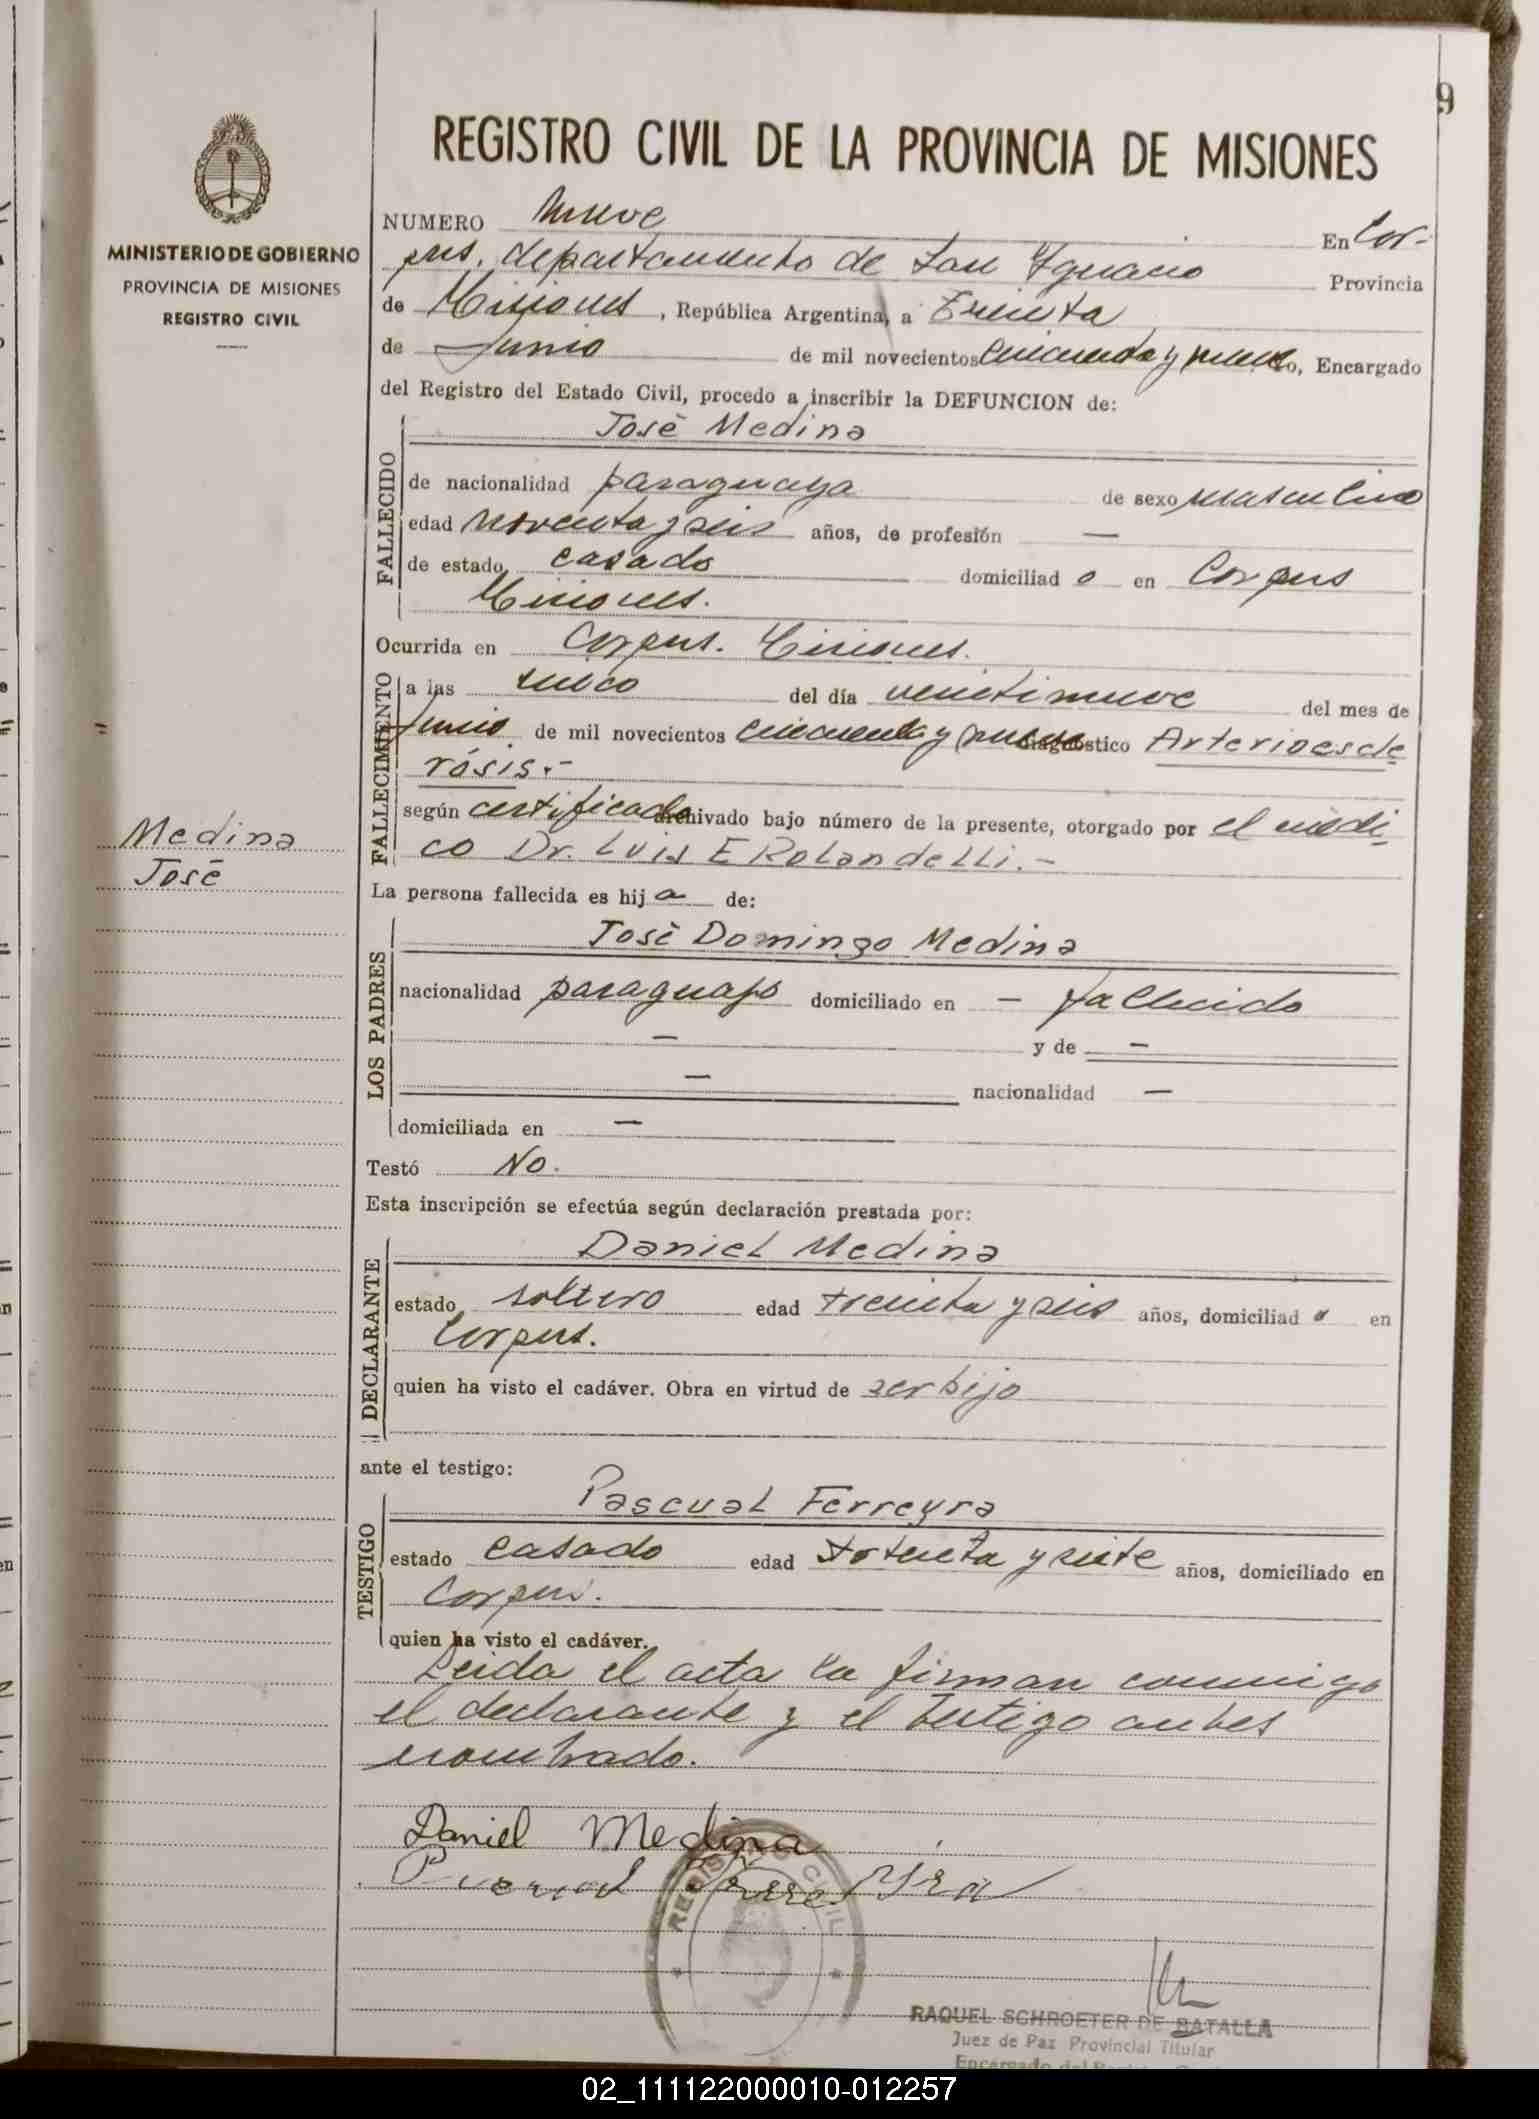 9
REGISTRO CIVIL DE LA PROVINCIA DE MISIONES
MINISTERIO DE GOBIERNO
PROVINCIA DE MISIONES
REGISTRO CIVIL
NUMERO nueve En Cor-
pus, departamento de San Ygnacio Provincia
de Misiones, República Argentina, a Treinta
de Junio de mil novecientos cincuenta y nueve, Encargado
del Registro del Estado Civil, procedo a inscribir la DEFUNCION de:
FALLECIDO
José Medina
de nacionalidad paraguaya de sexo masculino
edad noventa y seis años, de profesión —
de estado casado domiciliad o en Corpus
Misiones.
Ocurrida en Corpus. Misiones.
FALLECIMIENTO
a las cinco del día veintinueve del mes de
Junio de mil novecientos cincuenta y nueve diagnóstico Arterioescle
rósis.-
según certificado archivado bajo número de la presente, otorgado por el médi
co Dr. Luis E Rolandelli.-
Medina
José
La persona fallecida es hij a de:
LOS PADRES
José Domingo Medina
nacionalidad paraguayo domiciliado en — fallecido
— y de —
— nacionalidad —
domiciliada en —
Testó No.
Esta inscripción se efectúa según declaración prestada por:
DECLARANTE
Daniel Medina
estado soltero edad treinta y seis años, domiciliad o en
Corpus.
quien ha visto el cadáver. Obra en virtud de ser hijo
ante el testigo:
TESTIGO
Pascual Ferreyra
estado casado edad y siete años, domiciliado en
Corpus.
quien ha visto el cadáver.
Leida el acta la firman conmigo
el declarante y el testigo antes
nombrado.
Daniel Medina
Pascual Ferreyra
REGISTRO CIVIL
RAQUEL SCHROETER DE BATALLA
Juez de Paz Provincial Titular
Encargado del
02_111122000010-012257